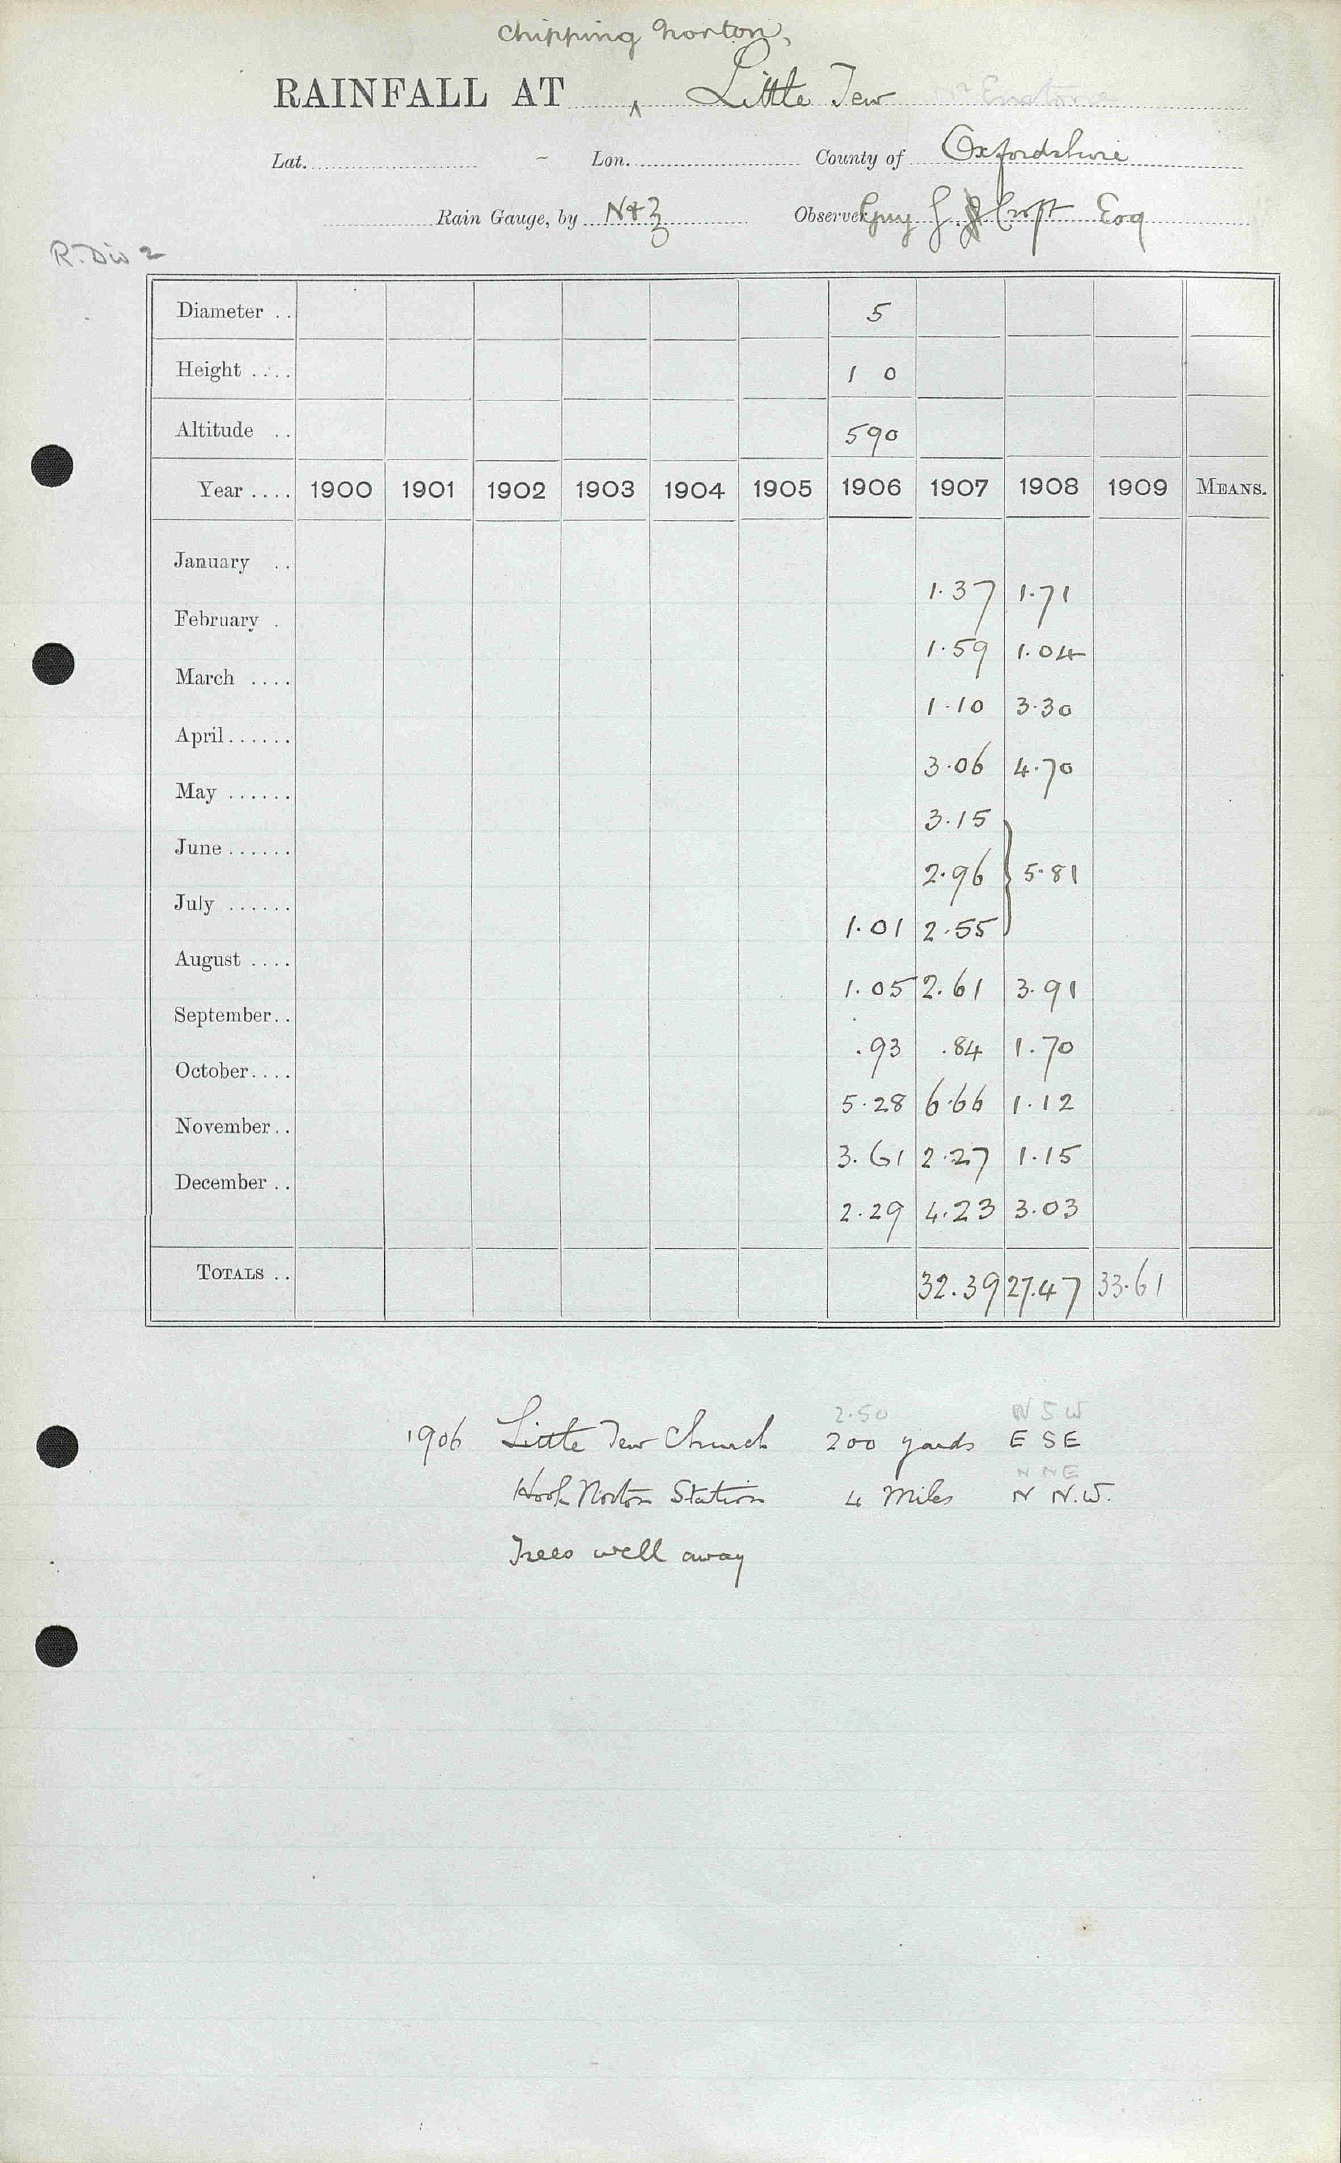 Chipping Norton,
RAINFALL AT ^ Little Tew Nr Enstone
Lat. ~ Lon. County of Oxfordshire
Rain Gauge, by N & Z Observer Guy G. Croft Esq
R. Div 2
Diameter .. 5
Height .... 1 0
Altitude .. 590
Year .... 1900 1901 1902 1903 1904 1905 1906 1907 1908 1909 MEANS.
January .. 1.37 1.71
February . 1.59 1.04
March .... 1.10 3.30
April ...... 3.06 4.70
May ...... 3.15
June ...... 2.96 } 5.81
July ...... 1.01 2.55
August .... 1.05 2.61 3.91
September .. .93 .84 1.70
October .... 5.28 6.66 1.12
November .. 3.61 2.27 1.15
December .. 2.29 4.23 3.03
TOTALS .. 32.39 27.47 33.61
2.50 W S W
1906 Little Tew Church 200 yards E S E
N N E
Hook Norton Station 4 Miles N N.W.
Trees well away